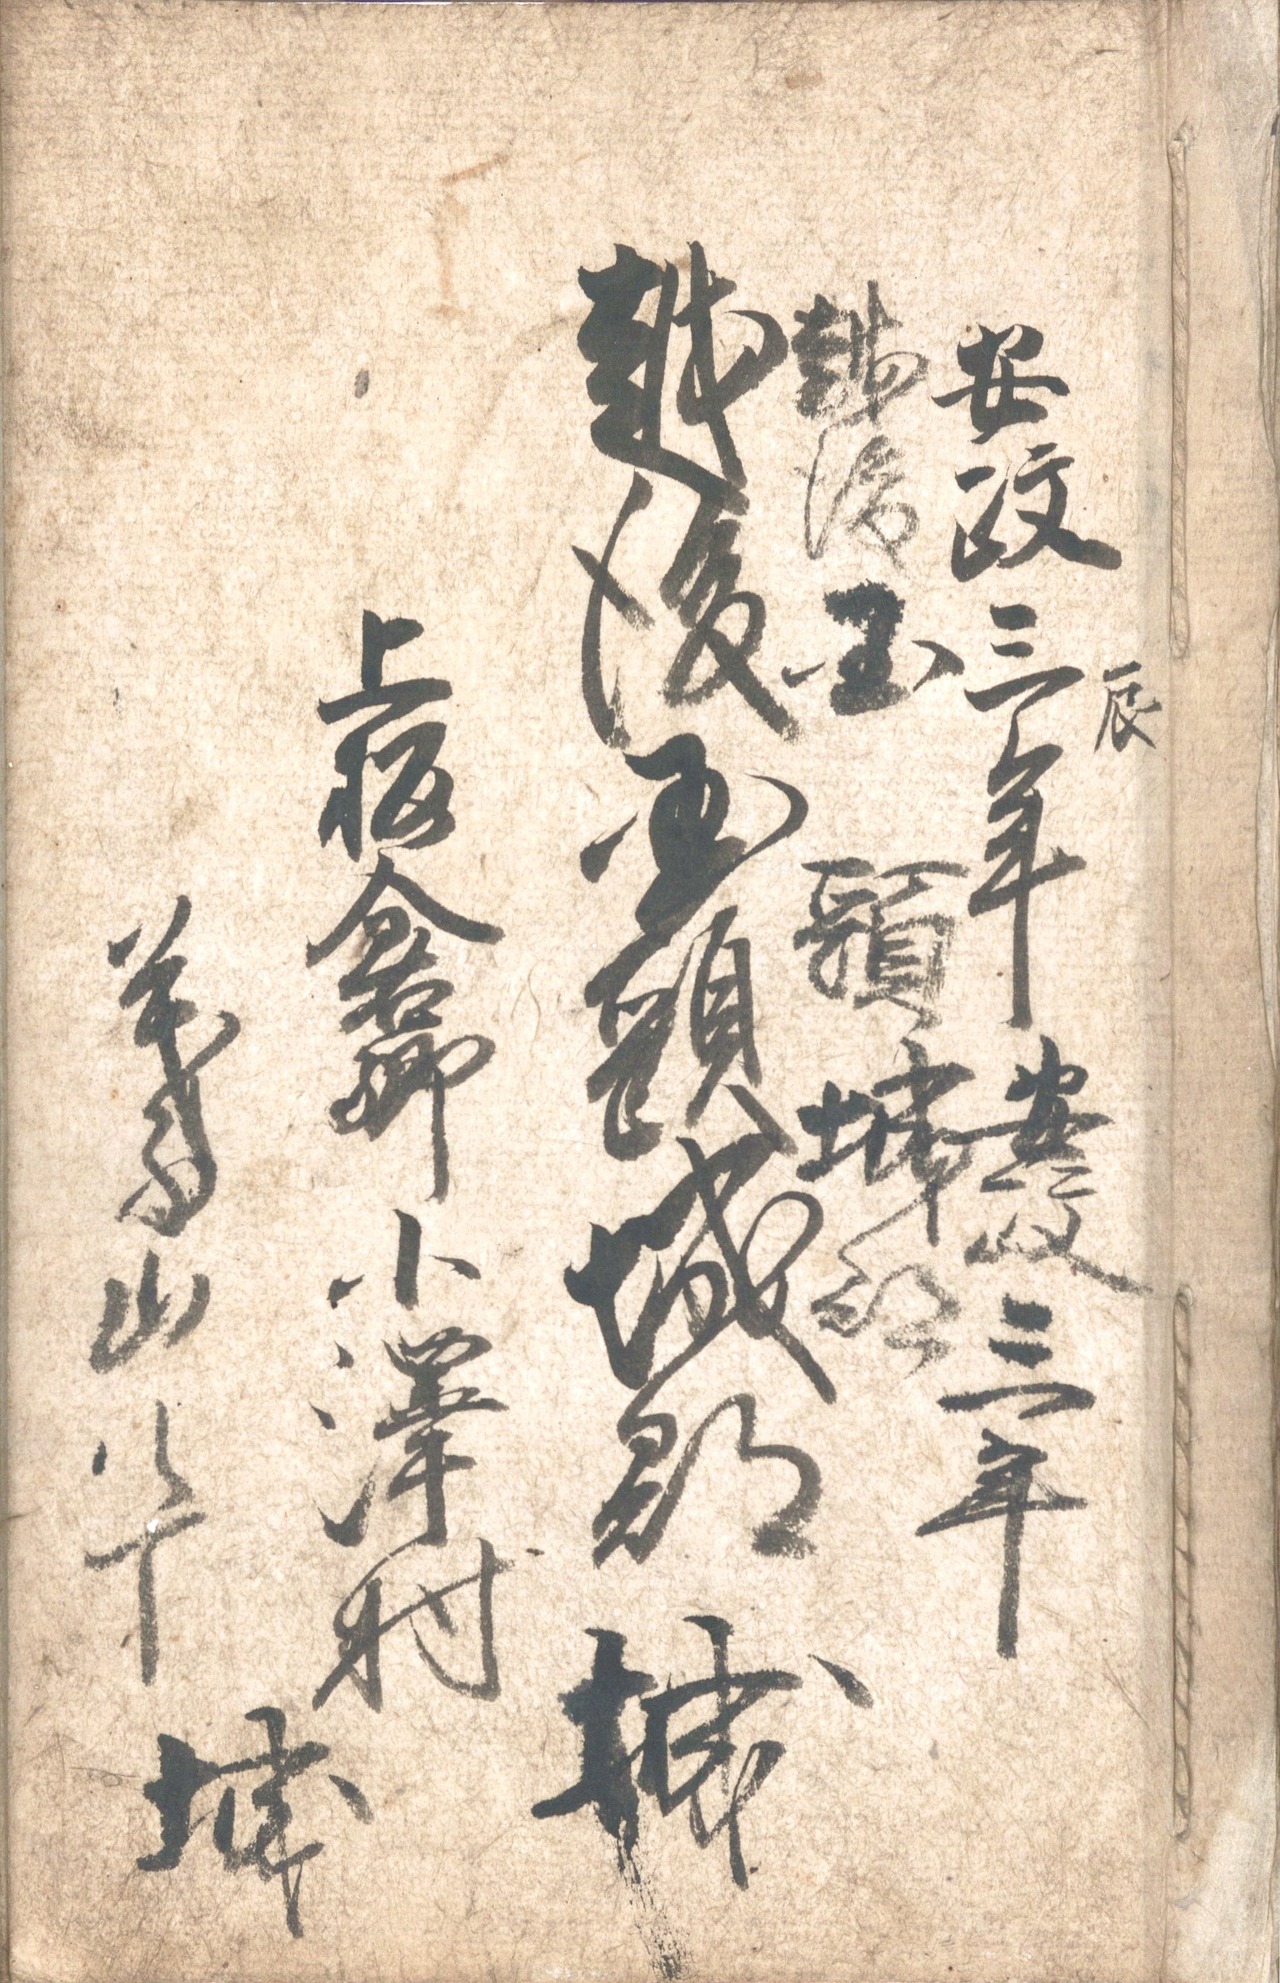 安政三年 安政三年
辰
越後国 頸城郡
越後国頸城郡 城
上板倉郷 小澤村
山 城